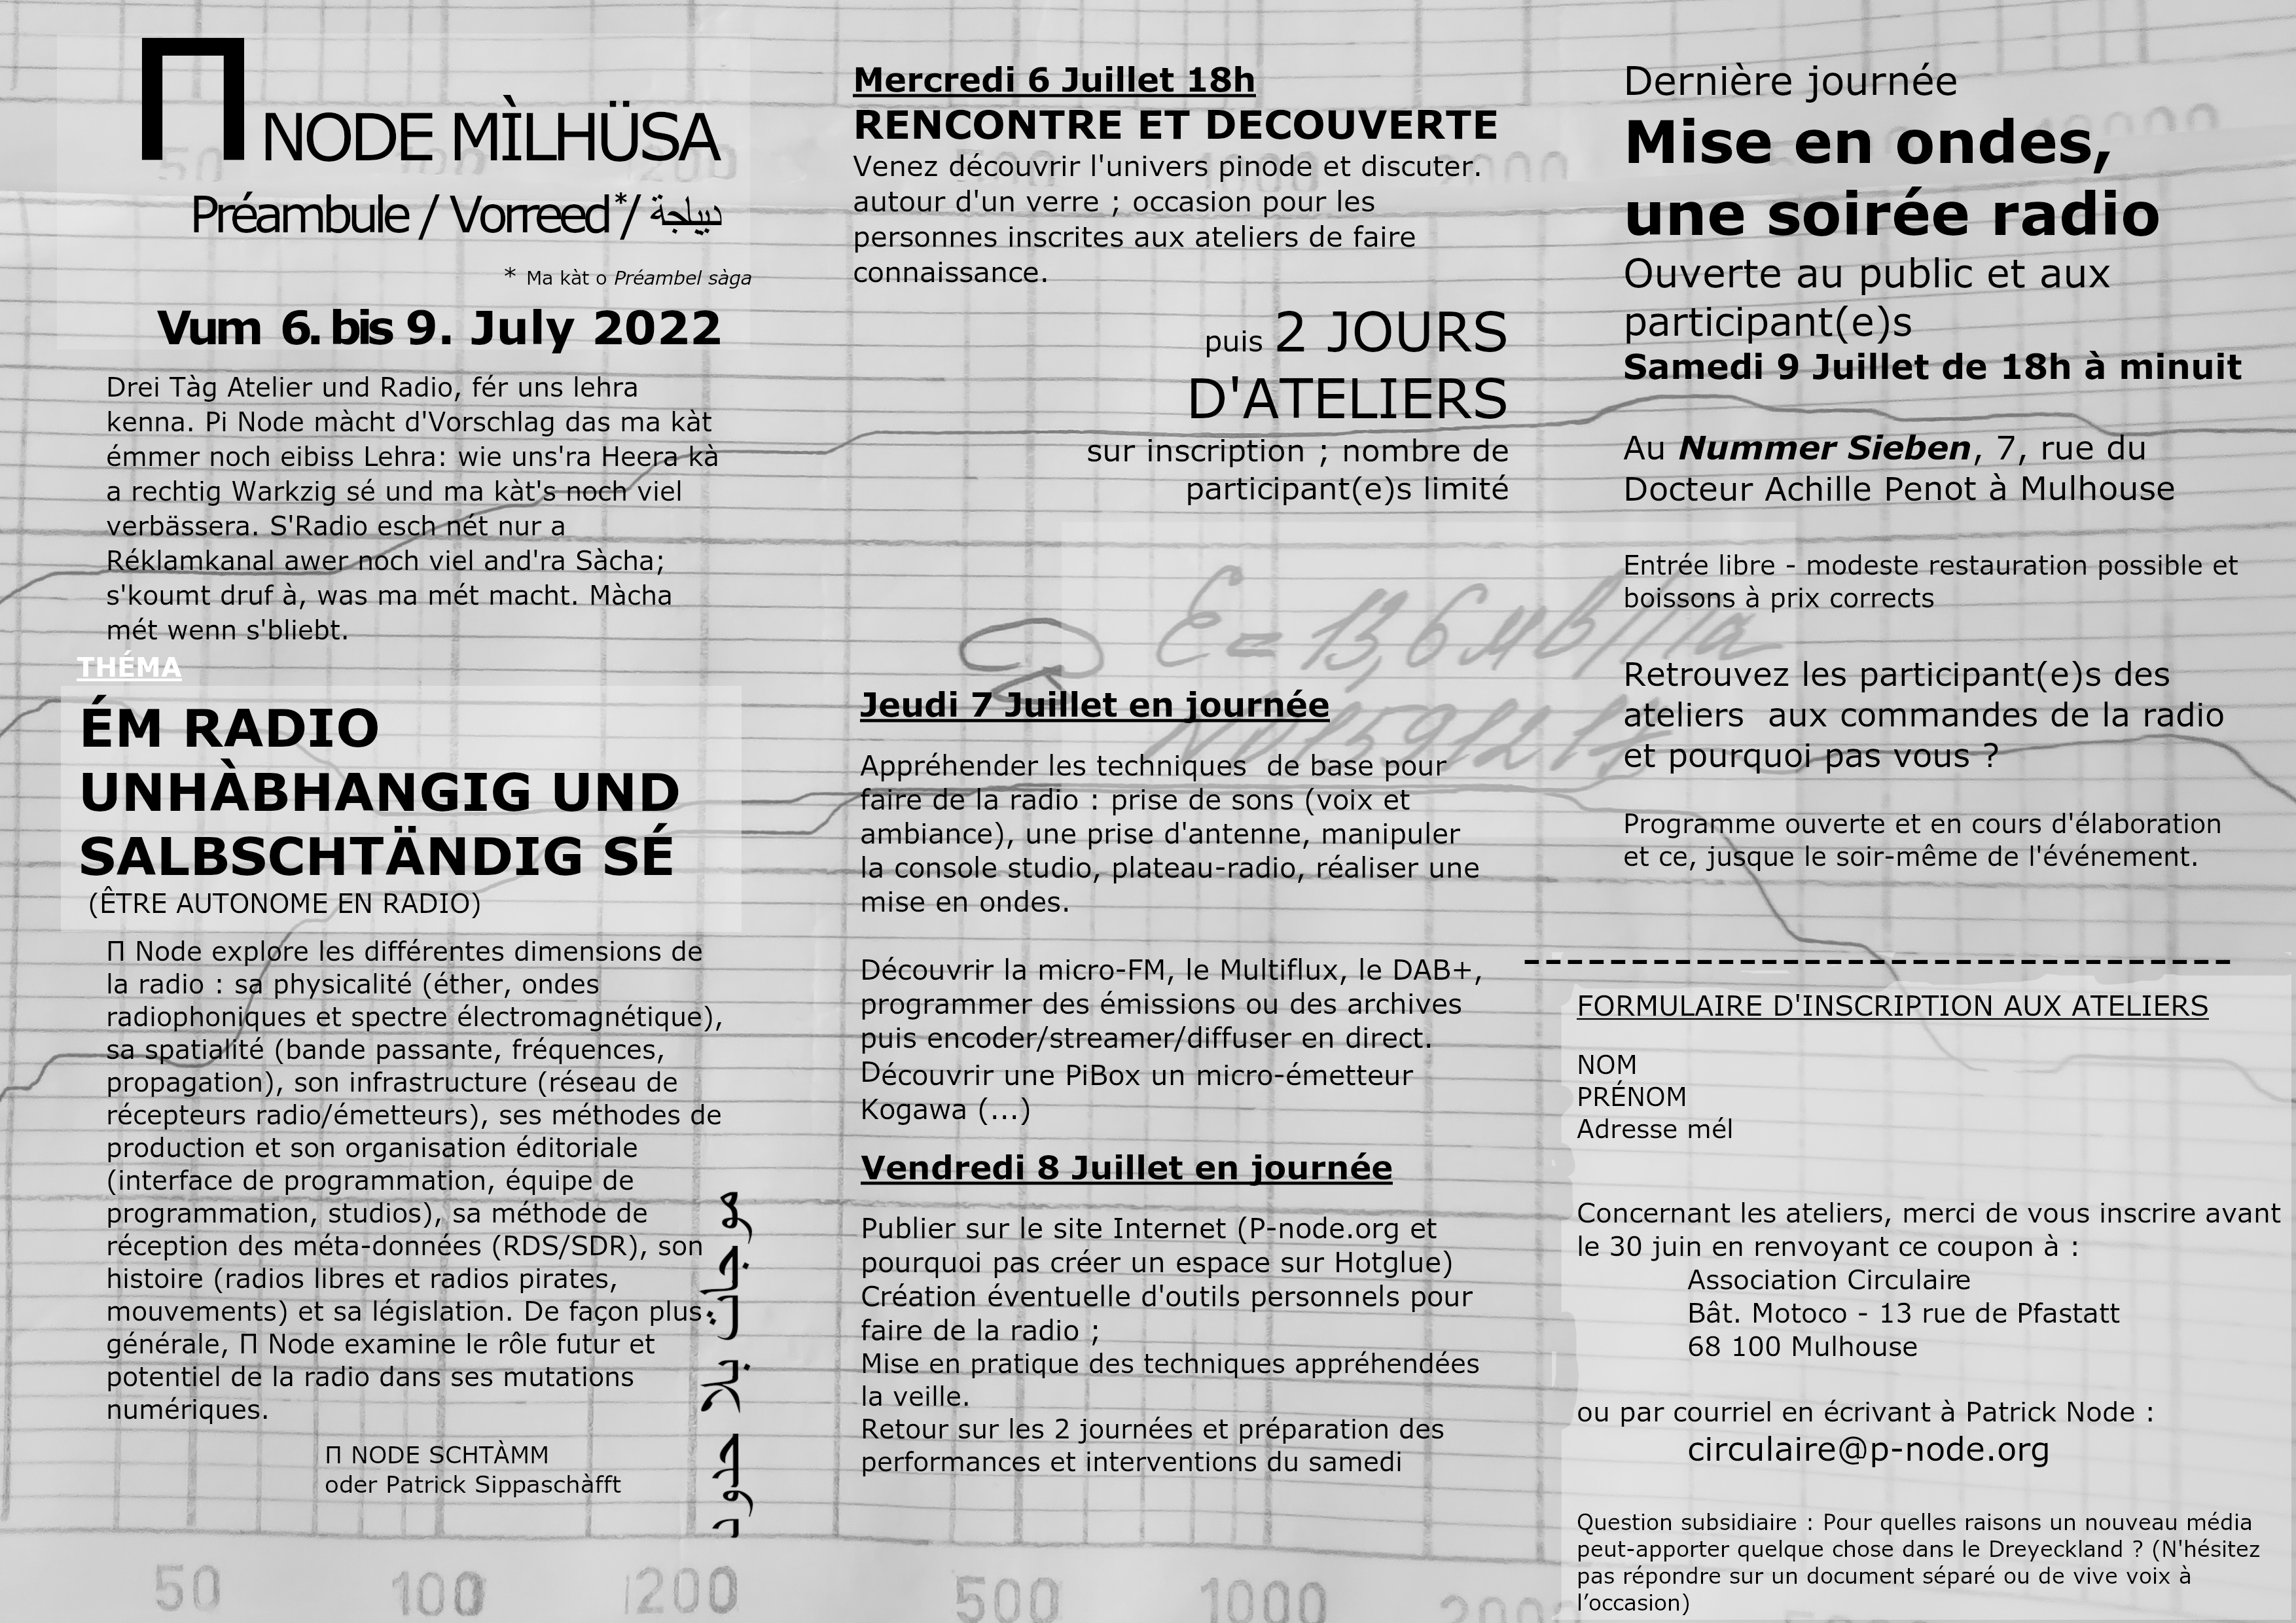 Π NODE MÌLHÜSA
Préambule / Vorreed*/ ديباجة
* Ma kàt o Préambel sàga
Vum 6. bis 9. July 2022
Drei Tàg Atelier und Radio, fér uns lehra
kenna. Pi Node màcht d'Vorschlag das ma kàt
émmer noch eibiss Lehra: wie uns'ra Heera kà
a rechtig Warkzig sé und ma kàt's noch viel
verbässera. S'Radio esch nét nur a
Réklamkanal awer noch viel and'ra Sàcha;
s'koumt druf à, was ma mét macht. Màcha
mét wenn s'bliebt.
THÉMA
ÉM RADIO
UNHÀBHANGIG UND
SALBSCHTÄNDIG SÉ
(ÊTRE AUTONOME EN RADIO)
Π Node explore les différentes dimensions de
la radio : sa physicalité (éther, ondes
radiophoniques et spectre électromagnétique),
sa spatialité (bande passante, fréquences,
propagation), son infrastructure (réseau de
récepteurs radio/émetteurs), ses méthodes de
production et son organisation éditoriale
(interface de programmation, équipe de
programmation, studios), sa méthode de
réception des méta-données (RDS/SDR), son
histoire (radios libres et radios pirates,
mouvements) et sa législation. De façon plus
générale, Π Node examine le rôle futur et
potentiel de la radio dans ses mutations
numériques.
Π NODE SCHTÀMM
oder Patrick Sippaschàfft
موجات بلا حدود
Mercredi 6 Juillet 18h
RENCONTRE ET DECOUVERTE
Venez découvrir l'univers pinode et discuter.
autour d'un verre ; occasion pour les
personnes inscrites aux ateliers de faire
connaissance.
puis 2 JOURS
D'ATELIERS
sur inscription ; nombre de
participant(e)s limité
Jeudi 7 Juillet en journée
Appréhender les techniques  de base pour
faire de la radio : prise de sons (voix et
ambiance), une prise d'antenne, manipuler
la console studio, plateau-radio, réaliser une
mise en ondes.
Découvrir la micro-FM, le Multiflux, le DAB+,
programmer des émissions ou des archives
puis encoder/streamer/diffuser en direct.
Découvrir une PiBox un micro-émetteur
Kogawa (...)
Vendredi 8 Juillet en journée
Publier sur le site Internet (P-node.org et
pourquoi pas créer un espace sur Hotglue)
Création éventuelle d'outils personnels pour
faire de la radio ;
Mise en pratique des techniques appréhendées
la veille.
Retour sur les 2 journées et préparation des
performances et interventions du samedi
Dernière journée
Mise en ondes,
une soirée radio
Ouverte au public et aux
participant(e)s
Samedi 9 Juillet de 18h à minuit
Au Nummer Sieben, 7, rue du
Docteur Achille Penot à Mulhouse
Entrée libre - modeste restauration possible et
boissons à prix corrects
Retrouvez les participant(e)s des
ateliers  aux commandes de la radio
et pourquoi pas vous ?
Programme ouverte et en cours d'élaboration
et ce, jusque le soir-même de l'événement.
FORMULAIRE D'INSCRIPTION AUX ATELIERS
NOM
PRÉNOM
Adresse mél
Concernant les ateliers, merci de vous inscrire avant
le 30 juin en renvoyant ce coupon à :
Association Circulaire
Bât. Motoco - 13 rue de Pfastatt
68 100 Mulhouse
ou par courriel en écrivant à Patrick Node :
circulaire@p-node.org
Question subsidiaire : Pour quelles raisons un nouveau média
peut-apporter quelque chose dans le Dreyeckland ? (N'hésitez
pas répondre sur un document séparé ou de vive voix à
l’occasion)
50 100 200 500 1000 2000